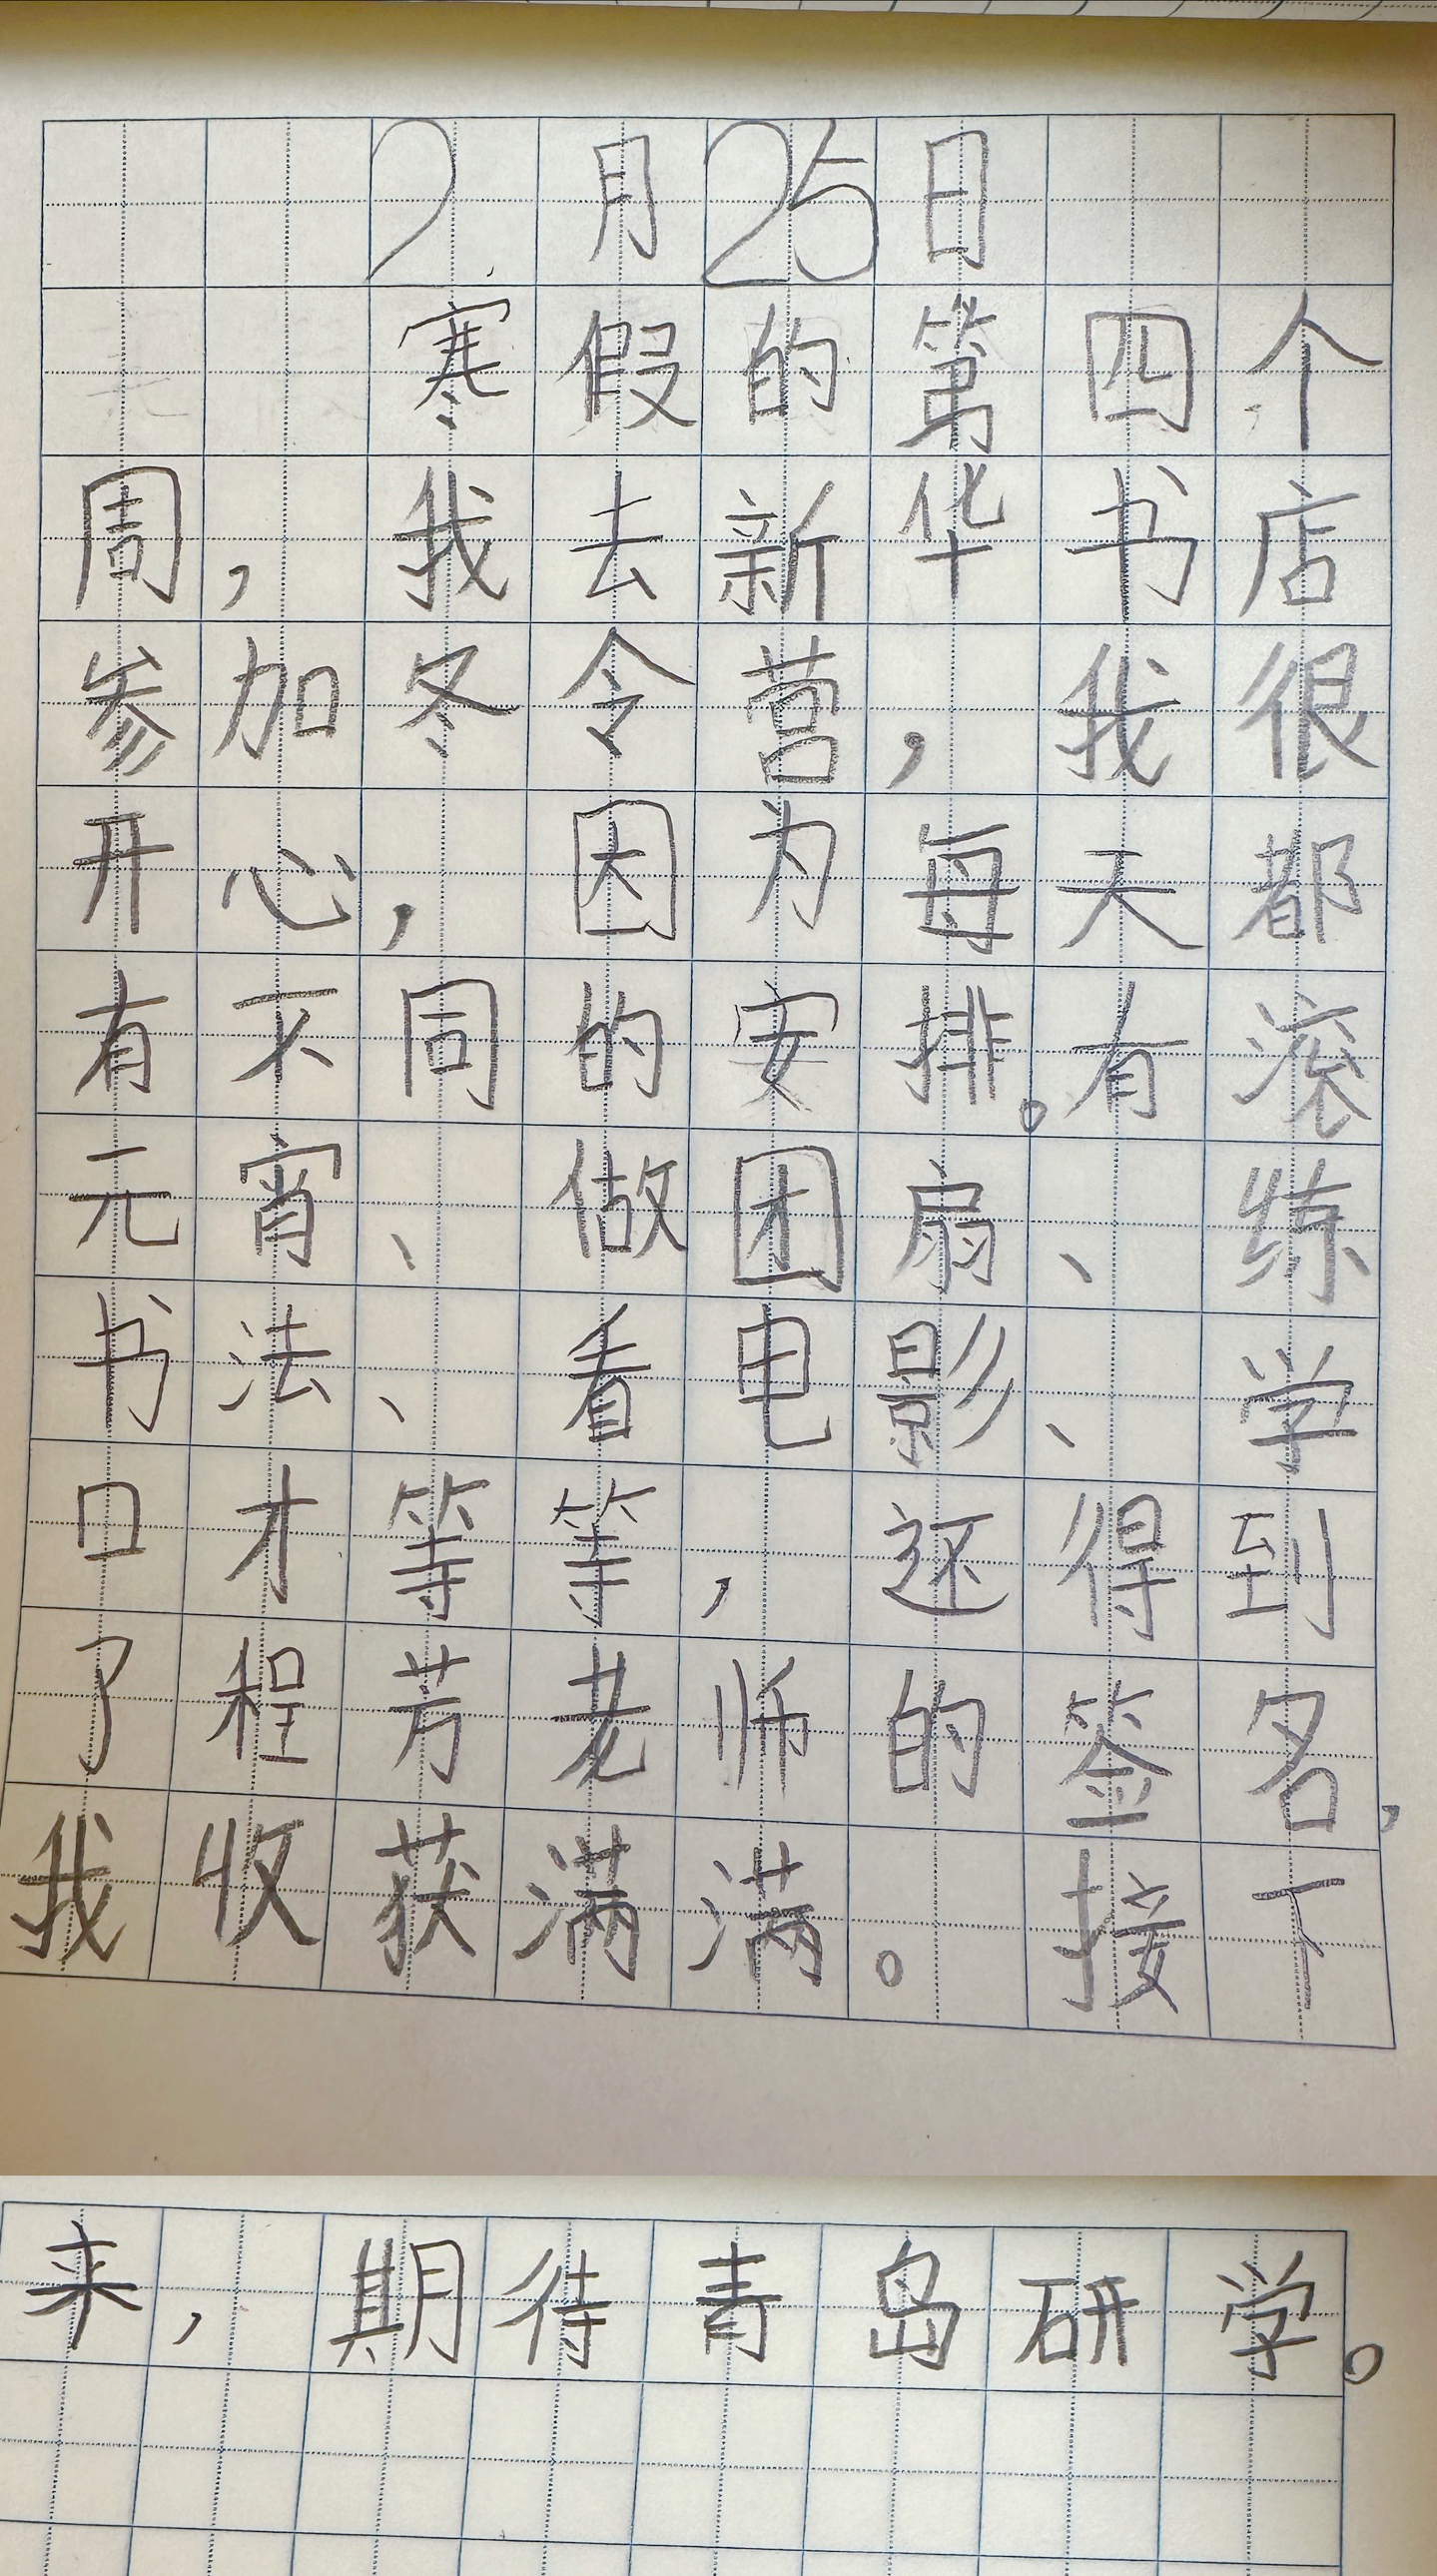 2月25日
寒假的第四个
周，我去新华书店
参加冬令营，我很
开心，因为每天都
有不同的安排。有滚
元宵、做团扇、练
书法、看电影、学
口才等等，还得到
了程芳老师的签名，
我收获满满。接下
来，期待青岛研学。